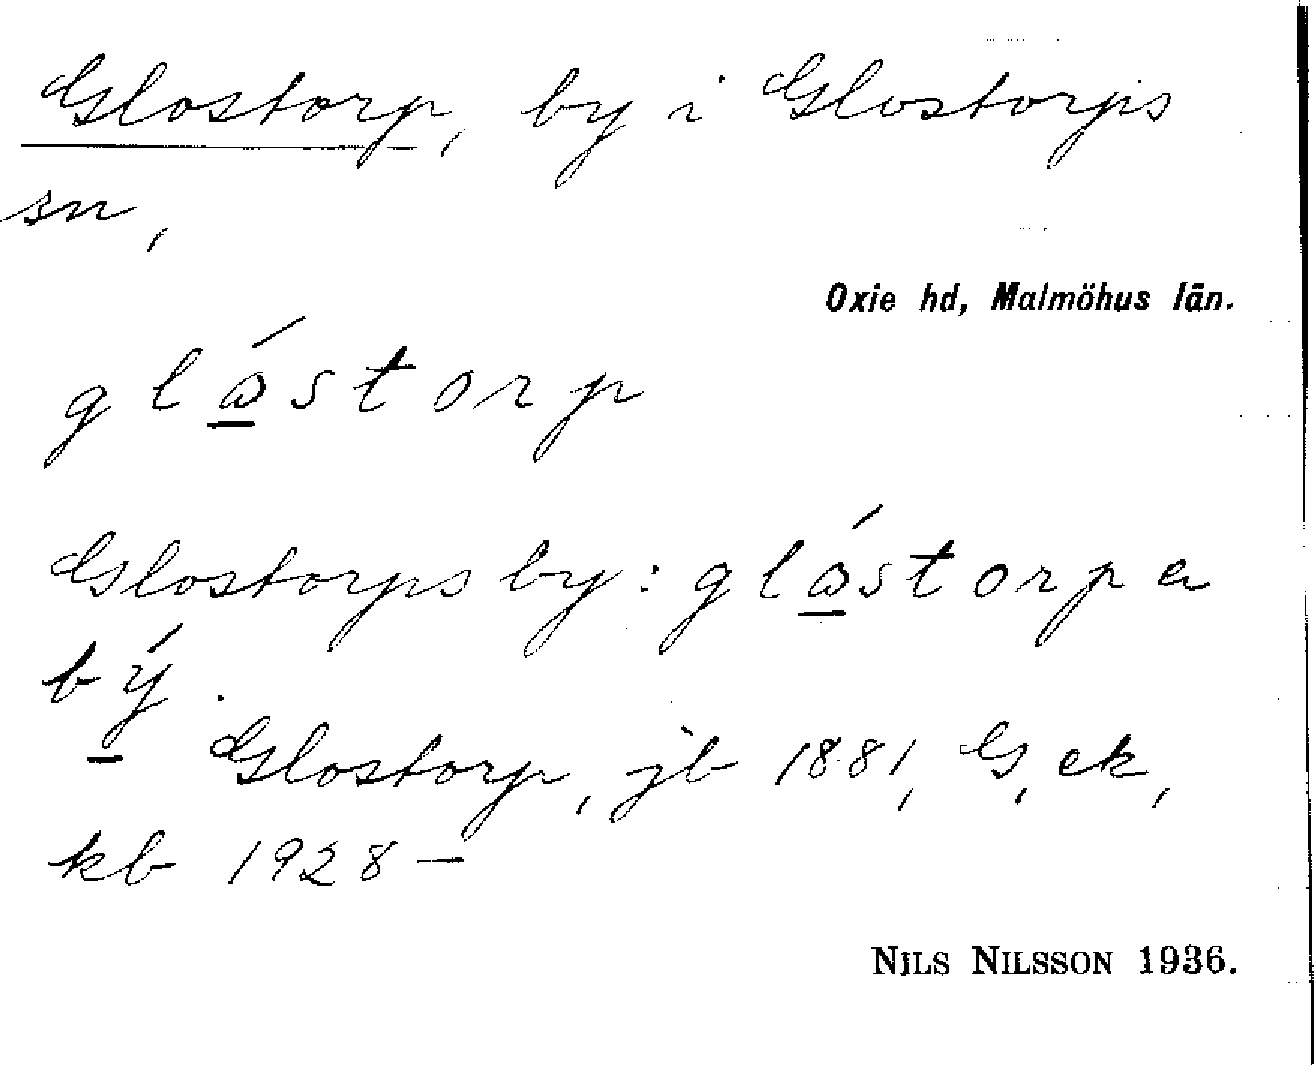 Glostorp, by i Glostorps
sn,
Oxie hd, Malmöhus län.
glåstorp
Glostorps by: glåstorpa
bý.
Glostorp, jb 1881, G, ek,
kb 1928—
NILS NILSSON 1936.